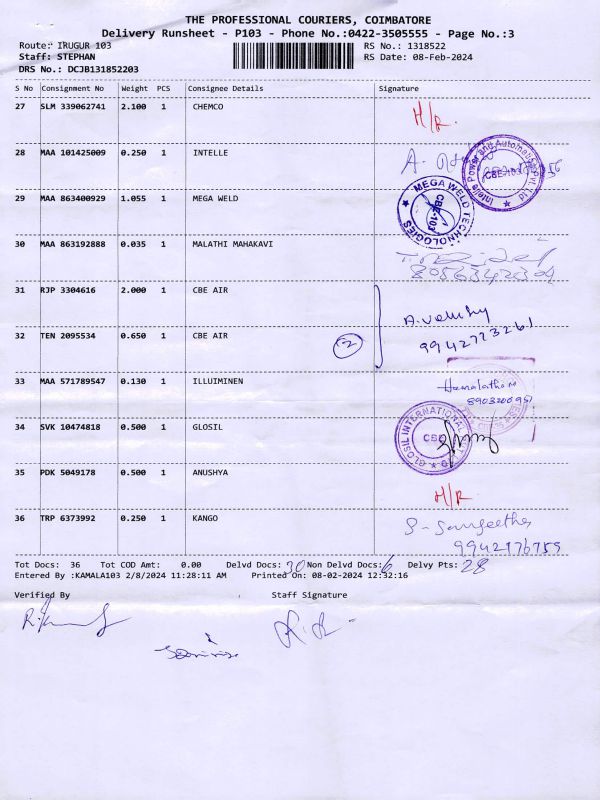 THE PROFESSIONAL COURIERS, COIMBATORE
Delivery Runsheet - P103 - Phone No.:0422-3505555 - Page No.:3
Route: IRUGUR 103 RS No.: 1318522
Staff: STEPHAN RS Date: 08-Feb-2024
DRS No.: DCJB131852203
S No Consignment No Weight PCS Consignee Details Signature
27 SLM 339062741 2.100 1 CHEMCO H/R.
28 MAA 101425009 0.250 1 INTELLE
Intelle Power and Automation Pvt. Ltd CBE
29 MAA 863400929 1.055 1 MEGA WELD
MEGA WELD TECHNOLOGIES CBE-103
30 MAA 863192888 0.035 1 MALATHI MAHAKAVI
31 RJP 3304616 2.000 1 CBE AIR
A. Velushy
9942723261
32 TEN 2095534 0.650 1 CBE AIR 2
33 MAA 571789547 0.130 1 ILLUIMINEN
34 SVK 10474818 0.500 1 GLOSIL
GLOSIL INTERNATIONAL CBE
35 PDK 5049178 0.500 1 ANUSHYA H/R
36 TRP 6373992 0.250 1 KANGO S-Sangeetha
9942176759
Tot Docs: 36 Tot COD Amt: 0.00 Delvd Docs: 30 Non Delvd Docs: 6 Delvy Pts: 28
Entered By :KAMALA103 2/8/2024 11:28:11 AM Printed On: 08-02-2024 12:32:16
Verified By Staff Signature